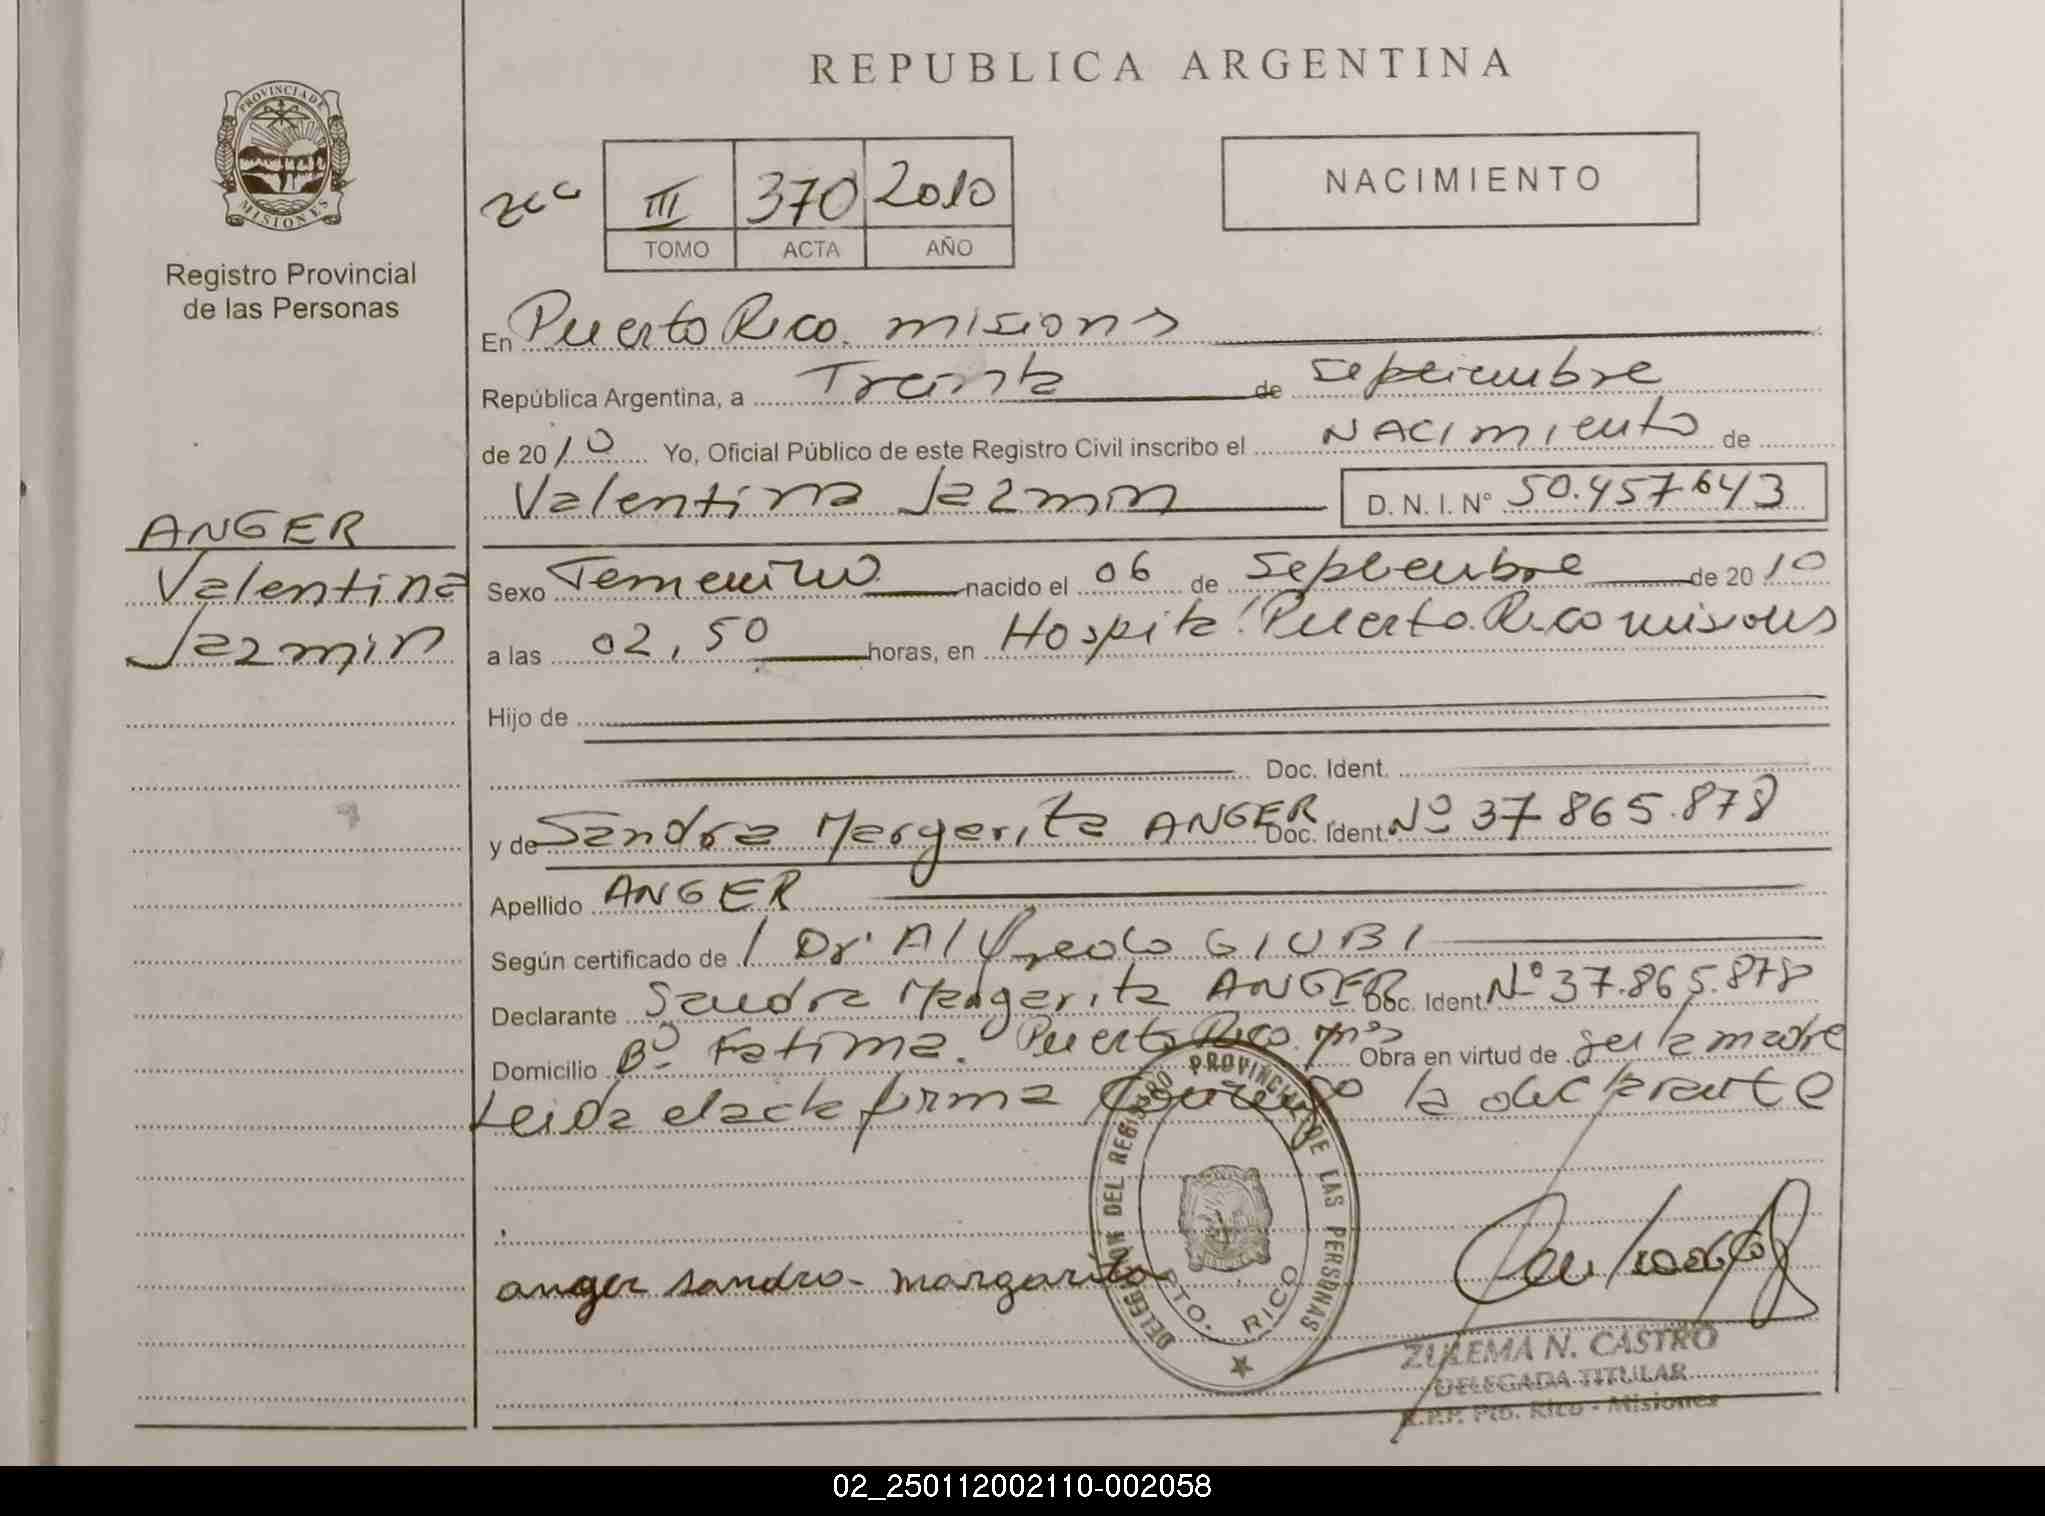 REPUBLICA ARGENTINA
PROVINCIA DE
MISIONES
Registro Provincial
de las Personas
III 370 2010
TOMO ACTA AÑO
NACIMIENTO
En Puerto Rico. misions
República Argentina, a Treinta de septiembre
de 2010 Yo, Oficial Público de este Registro Civil inscribo el NACImiento de
Valentina Jazmin D. N. I. N° 50.457.643
ANGER
Valentina
Jazmin
Sexo Femenino nacido el 06 de Septiembre de 2010
a las 02,50 horas, en Hospital Puerto Rico misiones
Hijo de
Doc. Ident.
y de Sandra Margarita ANGER Doc. Ident. Nº 37.865.878
Apellido ANGER
Según certificado de / Dr. Alfredo GIUBI
Declarante Sandra Margarita ANGER Doc. Ident. Nº 37.865.878
Domicilio Bº Fatima. Puerto Rico. Mnes Obra en virtud de ser la madre
Leida el acta firma conmigo la declarante
DELEGACION DEL REGISTRO PROVINCIAL DE LAS PERSONAS
PTO. RICO
anger sandra margarita
ZULEMA N. CASTRO
DELEGADA TITULAR
R.P.P. Pto. Rico - Misiones
02_250112002110-002058